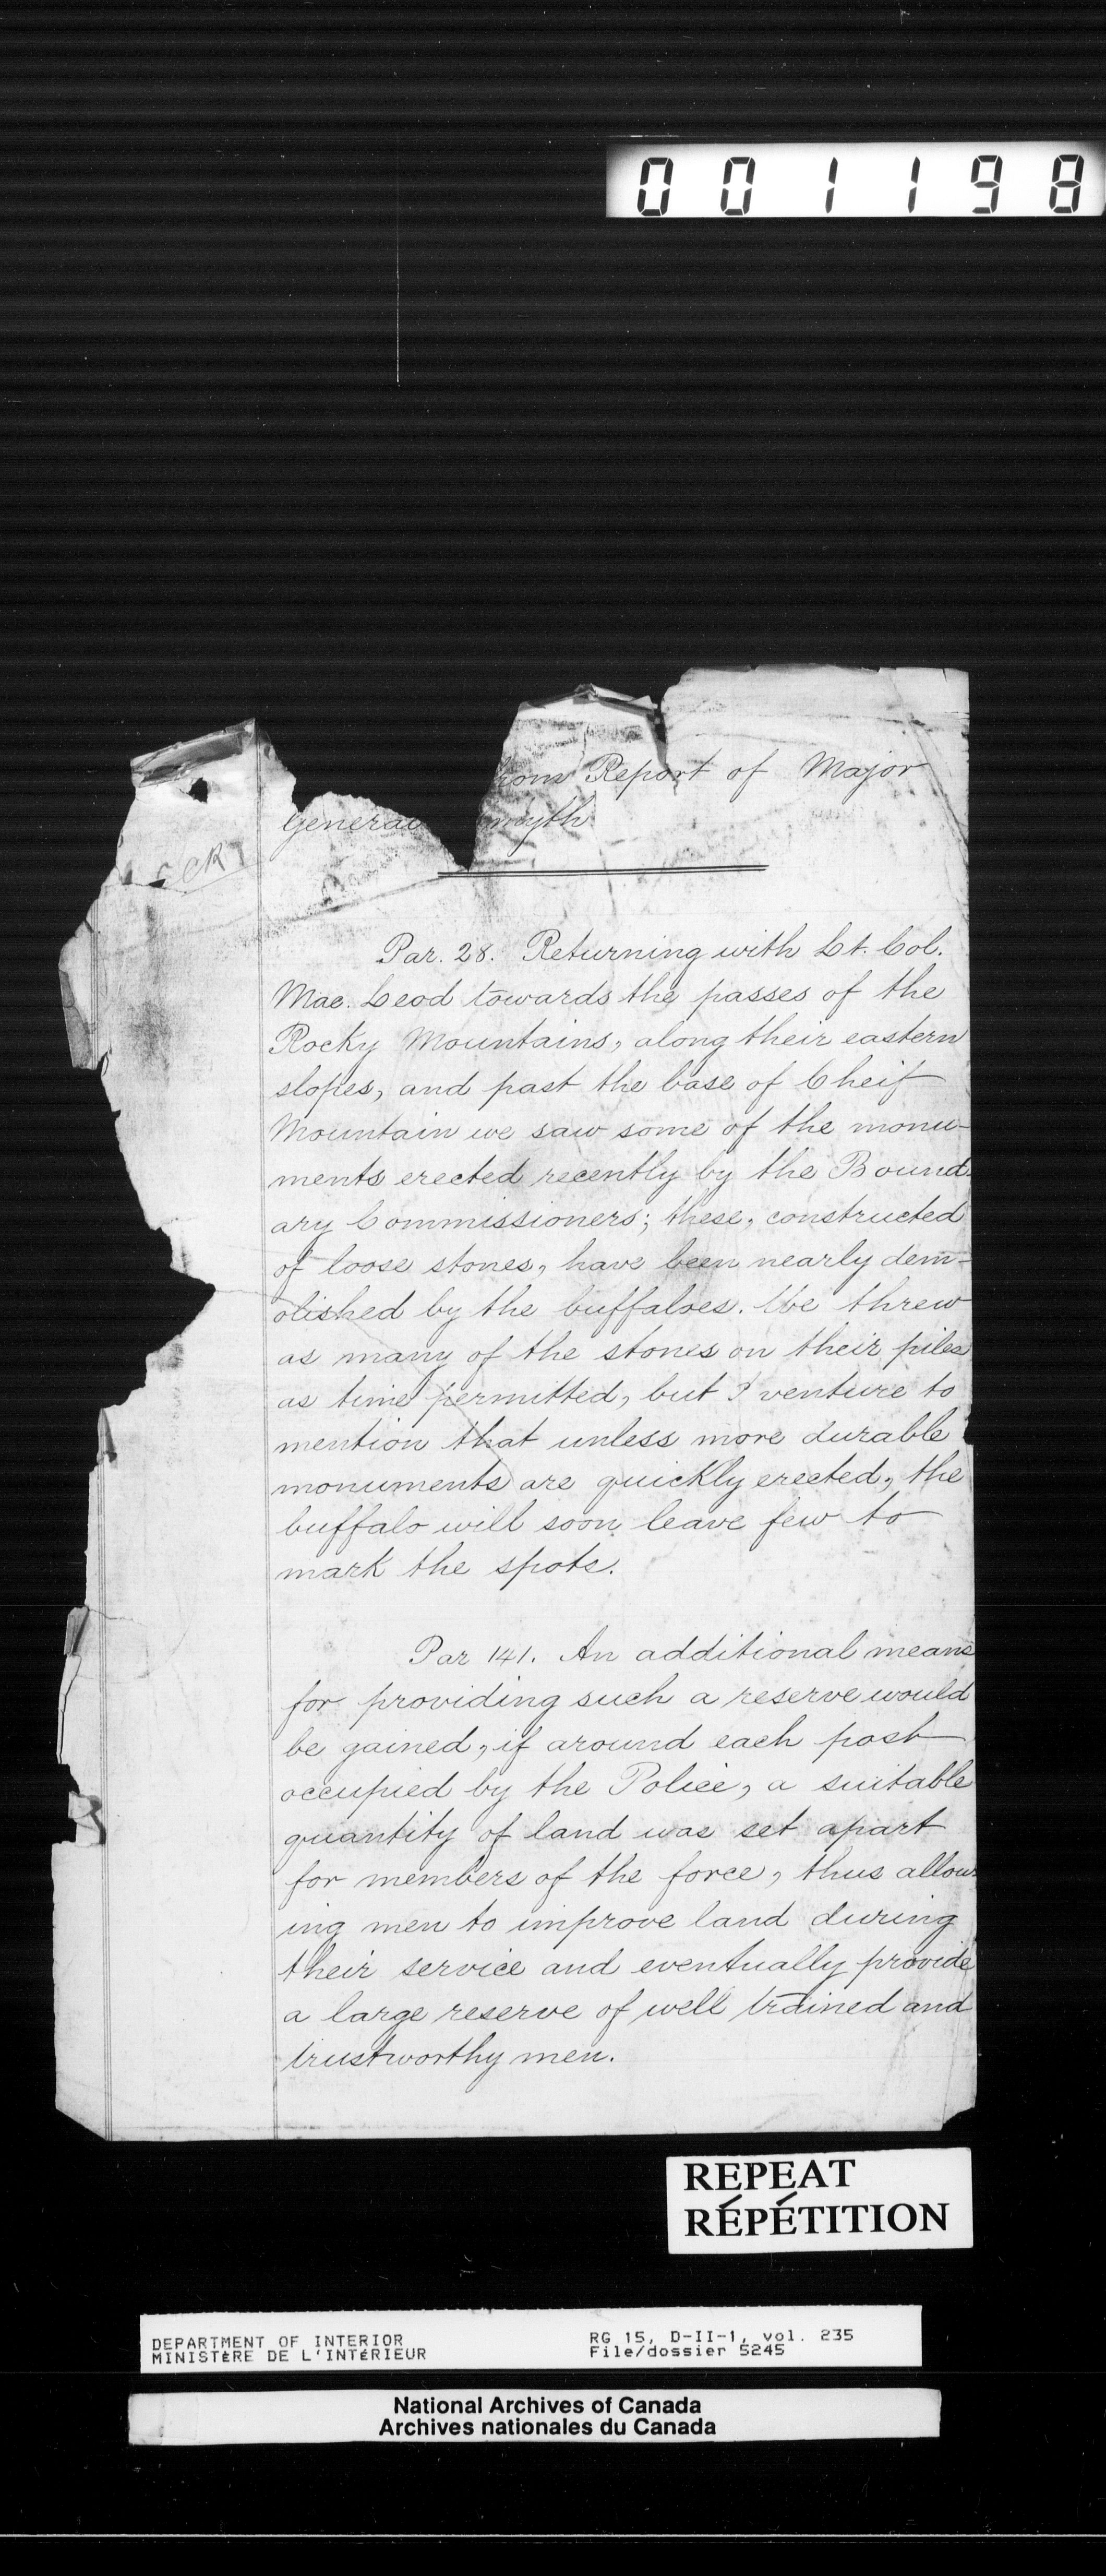 001198
Report of Major
General
CR
Par. 28. Returning with Lt. Col.
Mac. Leod towards the passes of the
Rocky Mountains, along their eastern
slopes, and past the base of Cheif
Mountain we saw some of the monu-
ments erected recently by the Bound-
ary Commissioners; these, constructed
of loose stones, have been nearly dem-
olished by the buffaloes. We threw
as many of the stones on their piles
as time permitted, but I venture to
mention that unless more durable
monuments are quickly erected, the
buffalo will soon leave few to
mark the spots.
Par 141. An additional means
for providing such a reserve would
be gained, if around each post
occupied by the Police, a suitable
quantity of land was set apart
for members of the force, thus allow-
ing men to improve land during
their service and eventually provide
a large reserve of well trained and
trustworthy men.
REPEAT
RÉPÉTITION
DEPARTMENT OF INTERIOR RG 15, D-II-1, vol. 235
MINISTÈRE DE L'INTÉRIEUR File/dossier 5245
National Archives of Canada
Archives nationales du Canada